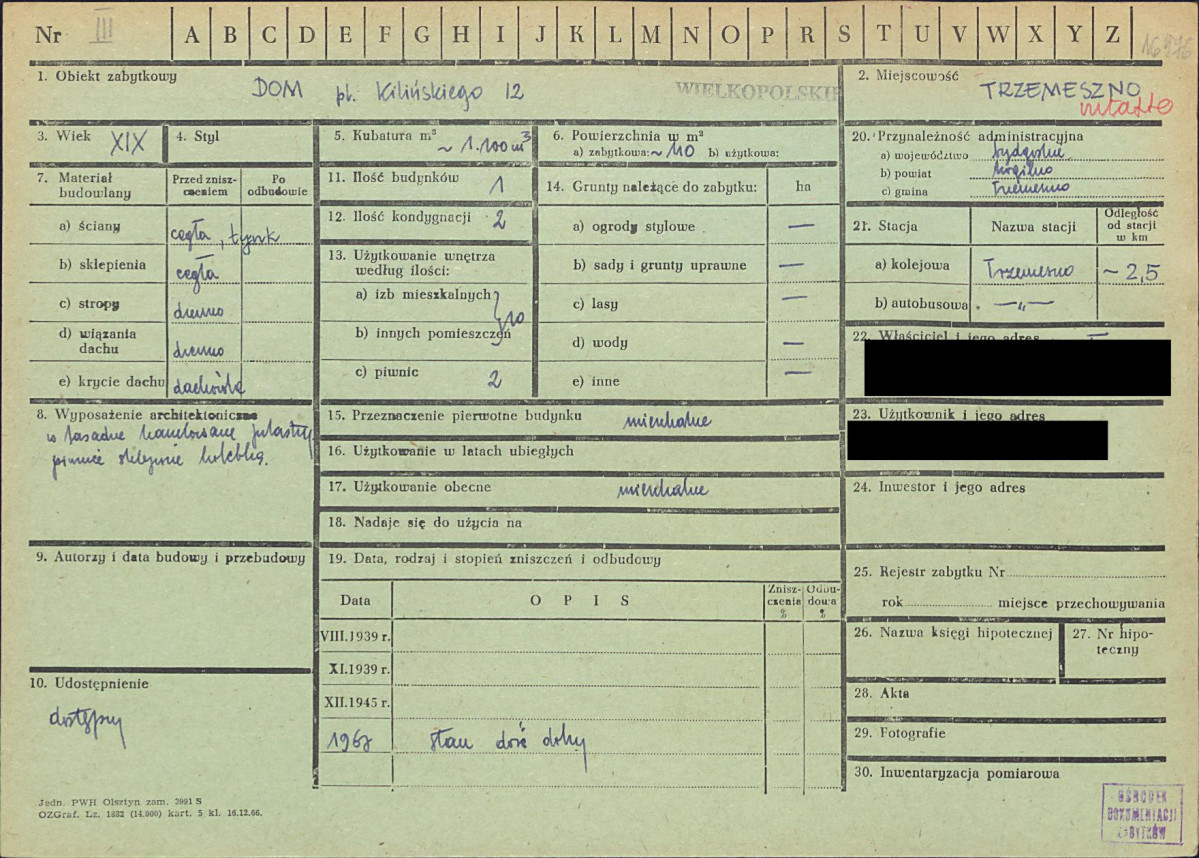 Nr III A B C D E F G H I J K L M N O P R S T U V W X Y Z
1. Obiekt zabytkowy
DOM pl. Kilińskiego 12
WIELKOPOLSKIE
2. Miejscowość
TRZEMESZNO
miasto
3. Wiek XIX
4. Styl
5. Kubatura m³
~ 1.100 m³
6. Powierzchnia w m²
a) zabytkowa: ~110 b) użytkowa:
7. Materiał budowlany
Przed znisz-
czeniem
Po
odbudowie
a) ściany cegła, tynk
b) sklepienia cegła
c) stropy drewno
d) wiązania
dachu drewno
e) krycie dachu dachówka
8. Wyposażenie architektoniczne
w fasadzie kanelowane pilastry
piwnice sklepione kolebką.
9. Autorzy i data budowy i przebudowy
10. Udostępnienie
dostępny
11. Ilość budynków 1
12. Ilość kondygnacji 2
13. Użytkowanie wnętrza
według ilości:
a) izb mieszkalnych
b) innych pomieszczeń
10
c) piwnic 2
14. Grunty należące do zabytku: ha
a) ogrody stylowe —
b) sady i grunty uprawne —
c) lasy —
d) wody —
e) inne —
15. Przeznaczenie pierwotne budynku mieszkalne
16. Użytkowanie w latach ubiegłych
17. Użytkowanie obecne mieszkalne
18. Nadaje się do użycia na
19. Data, rodzaj i stopień zniszczeń i odbudowy
Data OPIS
Znisz-
czenia
%
Odbu-
dowa
%
VIII.1939 r.
XI.1939 r.
XII.1945 r.
1967 stan dość dobry
20. Przynależność administracyjna
a) województwo bydgoskie
b) powiat Mogilno
c) gmina Trzemeszno
21. Stacja Nazwa stacji
Odległość
od stacji
w km
a) kolejowa Trzemeszno ~ 2,5
b) autobusowa —„—
22. Właściciel i jego adres
23. Użytkownik i jego adres
24. Inwestor i jego adres
25. Rejestr zabytku Nr
rok miejsce przechowywania
26. Nazwa księgi hipotecznej
27. Nr hipo-
teczny
28. Akta
29. Fotografie
30. Inwentaryzacja pomiarowa
Jedn. PWH Olsztyn zam. 3991 S
OZGraf. Lz. 1882 (14.000) kart. 5 kl. 16.12.66.
OŚRODEK
DOKUMENTACJI
ZABYTKÓW